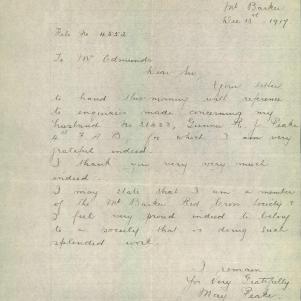 Mt Barker
Dec 13th 1917
File No 4552
To Mr Edmunds
Dear Sir,
Your letter
to hand this morning with reference
to enquiries made concerning my
husband No 21623, Gunner H. J. Peake
4th F A B. for which I am very
grateful indeed.
I thank you very very much
indeed.
I may state that I am a member
of the Mt Barker Red Cross Society &
I feel very proud indeed to belong
to a society that is doing such
splendid work.
I remain
yrs Very Gratefully
May Peake